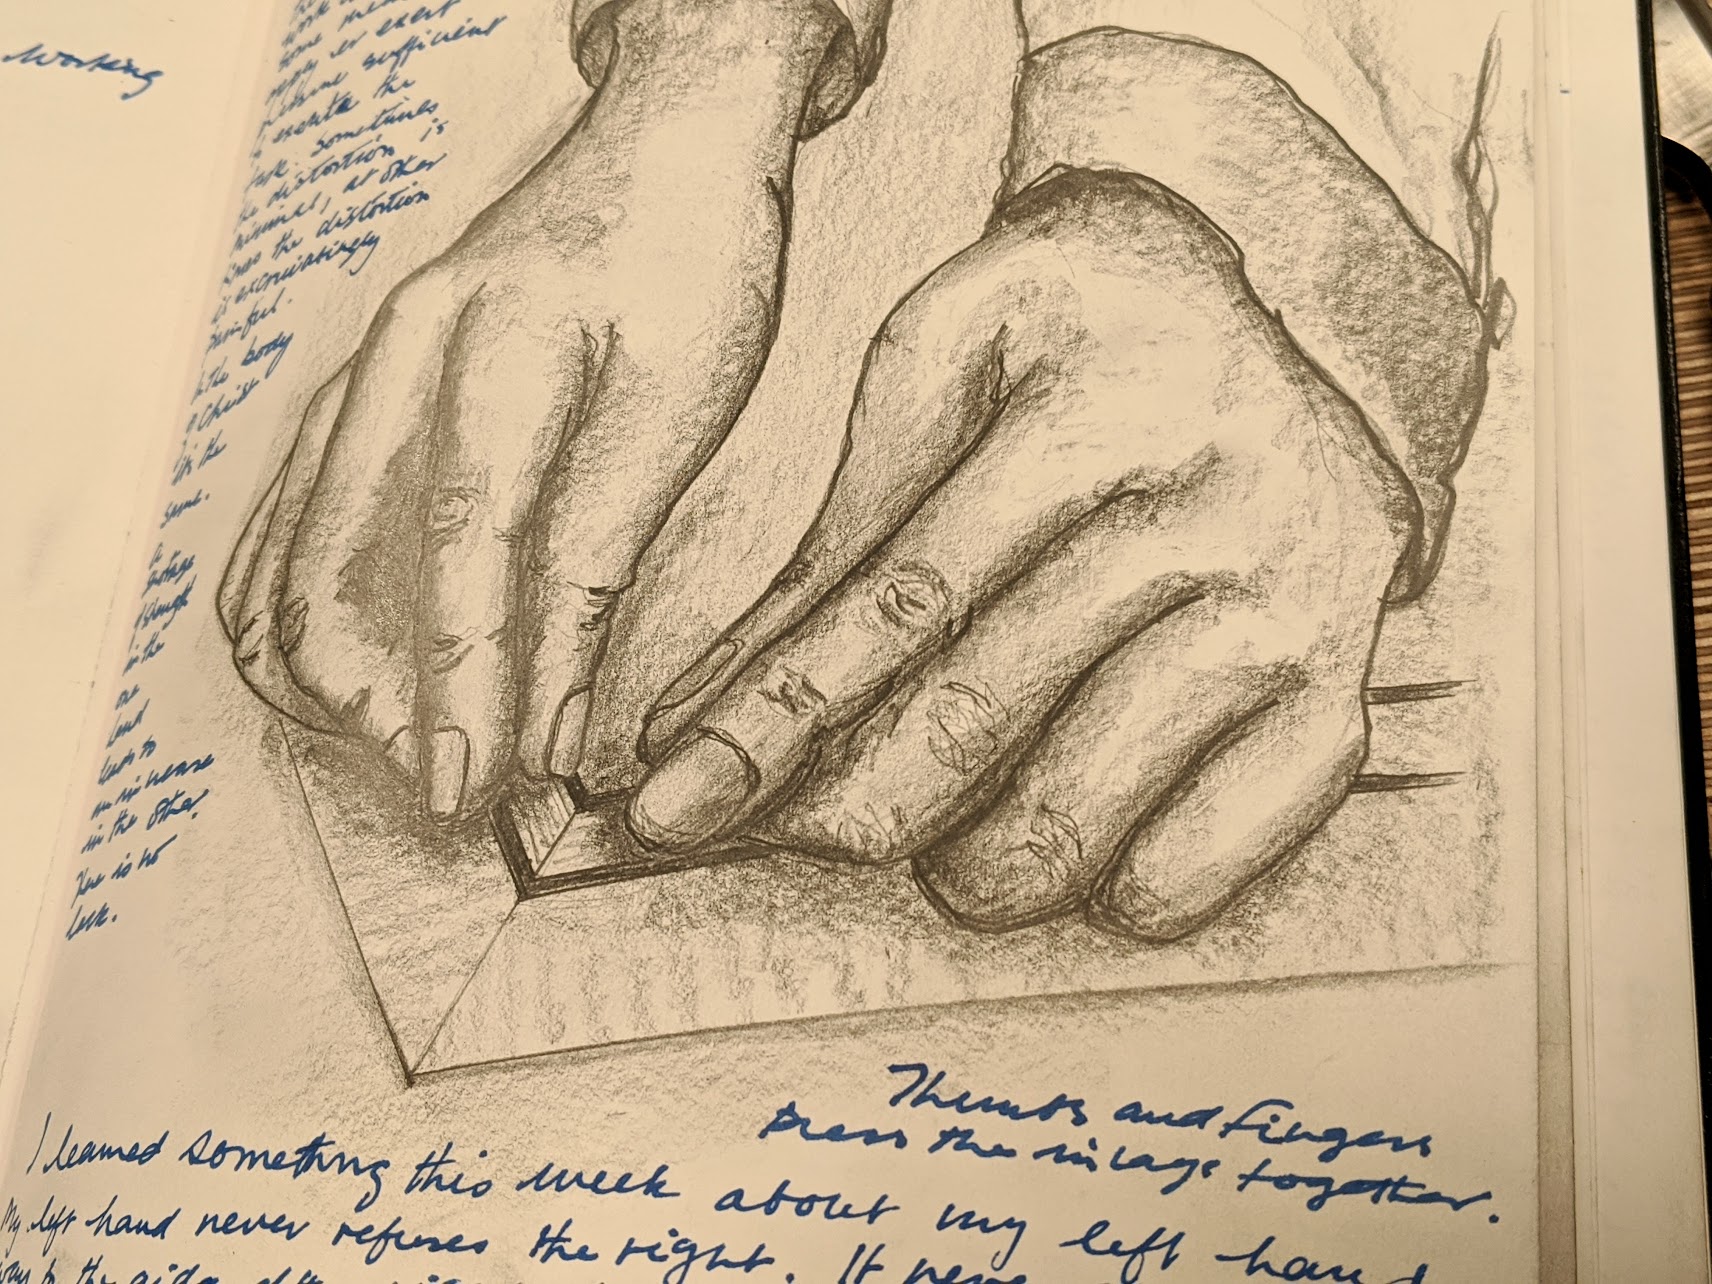 Working
work
some
apply or exert
pressure sufficient
to execute the
task. Sometimes
the distortion is
minimal, at other
times the distortion
is excruciatingly
painful.
In the body
of Christ
it's the
same.
A
shortage
of strength
in the
one
hand
leads to
an increase
in the other.
There is no
lack.
Thumbs and Fingers
press the image together.
I learned something this week about my left hand
My left hand never refuses the right. It never
to the aide of the